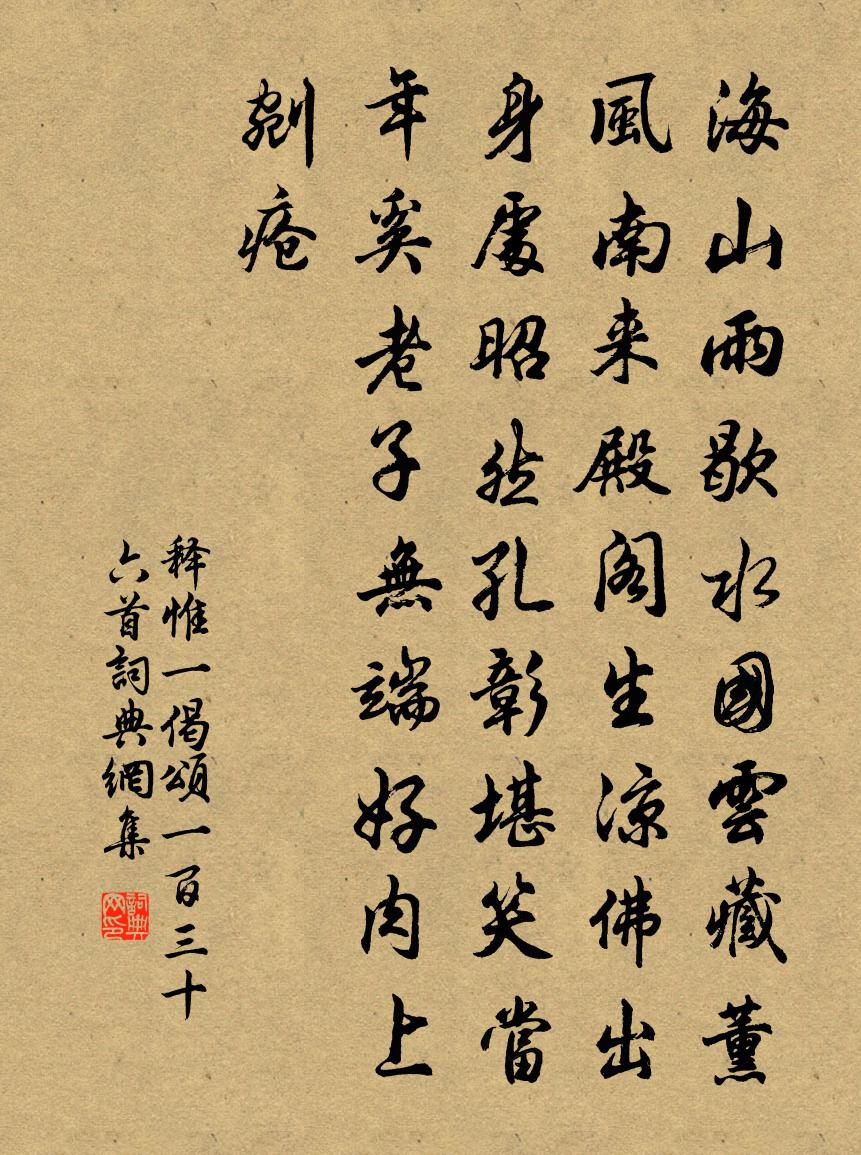 海山雨歇水國雲藏薰
風南来殿阁生涼佛出
身處昭然孔彰堪笑當
年奚老子無端好肉上
剜瘡
释惟一偈頌一百三十
六首詞典網集
詞典网印